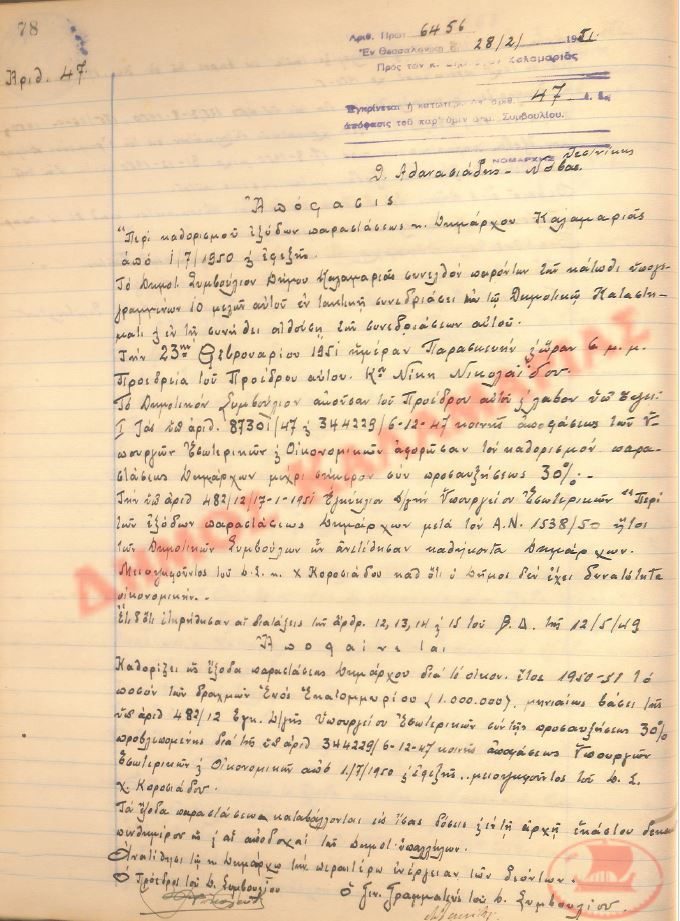 78
Ἀριθ. 47.
Ἀριθ. Πρωτ 6456
Ἐν Θεσσαλονίκῃ 28/2/1951
Πρός τόν κ. Καλαμαριᾶς
Ἐγκρίνεται ἡ κάτωθι ὑπ' ἀριθ. 47
ἀπόφασις τοῦ παρ' ὑμῖν Δημ. Συμβουλίου.
ΝΟΜΑΡΧΗΣ Θεσ/νίκης
Θ. Ἀθανασιάδης - Νόβας.
Ἀπόφασις
"Περί καθορισμοῦ ἐξόδων παραστάσεως κ. Δημάρχου Καλαμαριᾶς
ἀπό 1/7/1950 & ἐφεξῆς.
Τό Δημοτ. Συμβούλιον Δήμου Καλαμαριᾶς συνελθόν παρόντων τῶν κάτωθι ὑπογε-
γραμμένων 10 μελῶν αὐτοῦ ἐν τακτικῇ συνεδριάσει ἐν τῷ Δημοτικῷ Καταστή-
ματι & ἐν τῇ συνήθει αἰθούσῃ τῶν συνεδριάσεων αὐτοῦ.
Τήν 23ην Φεβρουαρίου 1951 ἡμέραν Παρασκευήν & ὥραν 6 μ.μ.
Προεδρεία τοῦ Προέδρου αὐτοῦ. Κου Νίκη Νικολαΐδου.
Τό Δημοτικόν Συμβούλιον ἀκοῦσαν τοῦ Προέδρου αὐτοῦ & λαβόν ὑπ' ὄψει:
Τάς ὑπ' ἀριθ. 87301/47 & 344229/6-12-47 κοινάς ἀποφάσεις τῶν Ὑ-
πουργῶν Ἐσωτερικῶν & Οἰκονομικῶν ἀφορῶσαν τόν καθορισμόν παρα-
στάσεως Δημάρχων μέχρι σήμερον σύν προσαυξήσεως 30%.-
Τήν ὑπ' ἀριθ 482/12/17-1-1951 Ἐγκύκλιον Δ/γήν Ὑπουργείου Ἐσωτερικῶν "Περί
τῶν ἐξόδων παραστάσεως Δημάρχων μετά τόν Α.Ν. 1538/50 ἤτοι
τῶν Δημοτικῶν Συμβούλων ὧν ἀνετέθησαν καθήκοντα Δημάρχων.
Μειοψηφοῦντος τοῦ Δ.Σ. κ. Χ Κοροσιάδου καθ' ὅτι ὁ Δῆμος δέν ἔχει δυνατότητα
οἰκονομικήν.-
Ἔτι δέ ὅτι ἐτηρήθησαν αἱ διατάξεις τῶν ἄρθρ. 12, 13, 14 & 15 τοῦ Β.Δ. τῆς 12/5/49
Ἀποφαίνεται
Καθορίζει ὡς ἔξοδα παραστάσεως Δημάρχου διά τό οἰκον. ἔτος 1950-51 τό
ποσόν τῶν δραχμῶν Ἑνός Ἑκατομμυρίου (1.000.000), μηνιαίως βάσει τῆς
ὑπ' ἀριθ 482/12 Ἐγκ. Δ/γῆς Ὑπουργείου Ἐσωτερικῶν σύν τῆς προσαυξήσεως 30%
προβλεπομένης διά τῆς ὑπ' ἀριθ 344229/6-12-47 κοινῆς ἀποφάσεως Ὑπουργῶν
Ἐσωτερικῶν & Οἰκονομικῶν ἀπό 1/7/1950 & ἐφεξῆς.. μειοψηφοῦντος τοῦ Δ.Σ.
Χ. Κοροσιάδου.
Τά ἔξοδα παραστάσεως καταβάλλονται εἰς ἴσας δόσεις & ἐν τῇ ἀρχῇ ἑκάστου δεκα-
πενθημέρου ὡς & αἱ ἀποδοχαί τῶν Δημοτ. ὑπαλλήλων.
Ἀνατίθησι τῷ κ. Δημάρχῳ τήν περαιτέρω ἐνέργειαν τῶν δεόντων.
Ὁ Πρόεδρος τοῦ Δ. Συμβουλίου
Ὁ Γεν. Γραμματεύς τοῦ Δ. Συμβουλίου.
ΔΗΜΟΣ ΚΑΛΑΜΑΡΙΑΣ